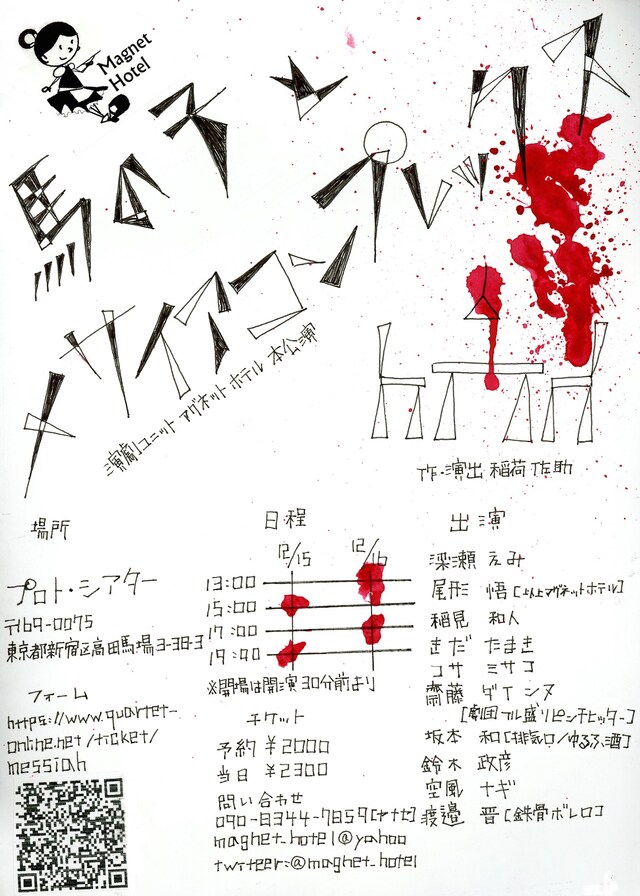 Magnet
Hotel
メサイアコンプレックス
演劇ユニット マグネットホテル 本公演
作・演出 稲荷 佐助
場所
プロト・シアター
〒169-0075
東京都新宿区高田馬場3-38-3
フォーム
https://www.quartet-
online.net/ticket/
messiah
日程
12/15 12/16
13:00
15:00
17:00
19:00
※開場は開演30分前より
チケット
予約 ¥2000
当日 ¥2300
問い合わせ
090-8344-7859
magnet_hotel@yahoo
twitter:@magnet_hotel
出演
梁瀬 えみ
尾形 悟[以上マグネットホテル]
稲見 和人
きだ たまき
コサ ミサコ
齋藤 ダイシヌ
[劇団フル盛りピンチヒッター]
坂本 和[排気口/ゆるふ酒]
鈴木 政彦
空風 ナギ
渡邉 晋[鉄骨ボレロ]